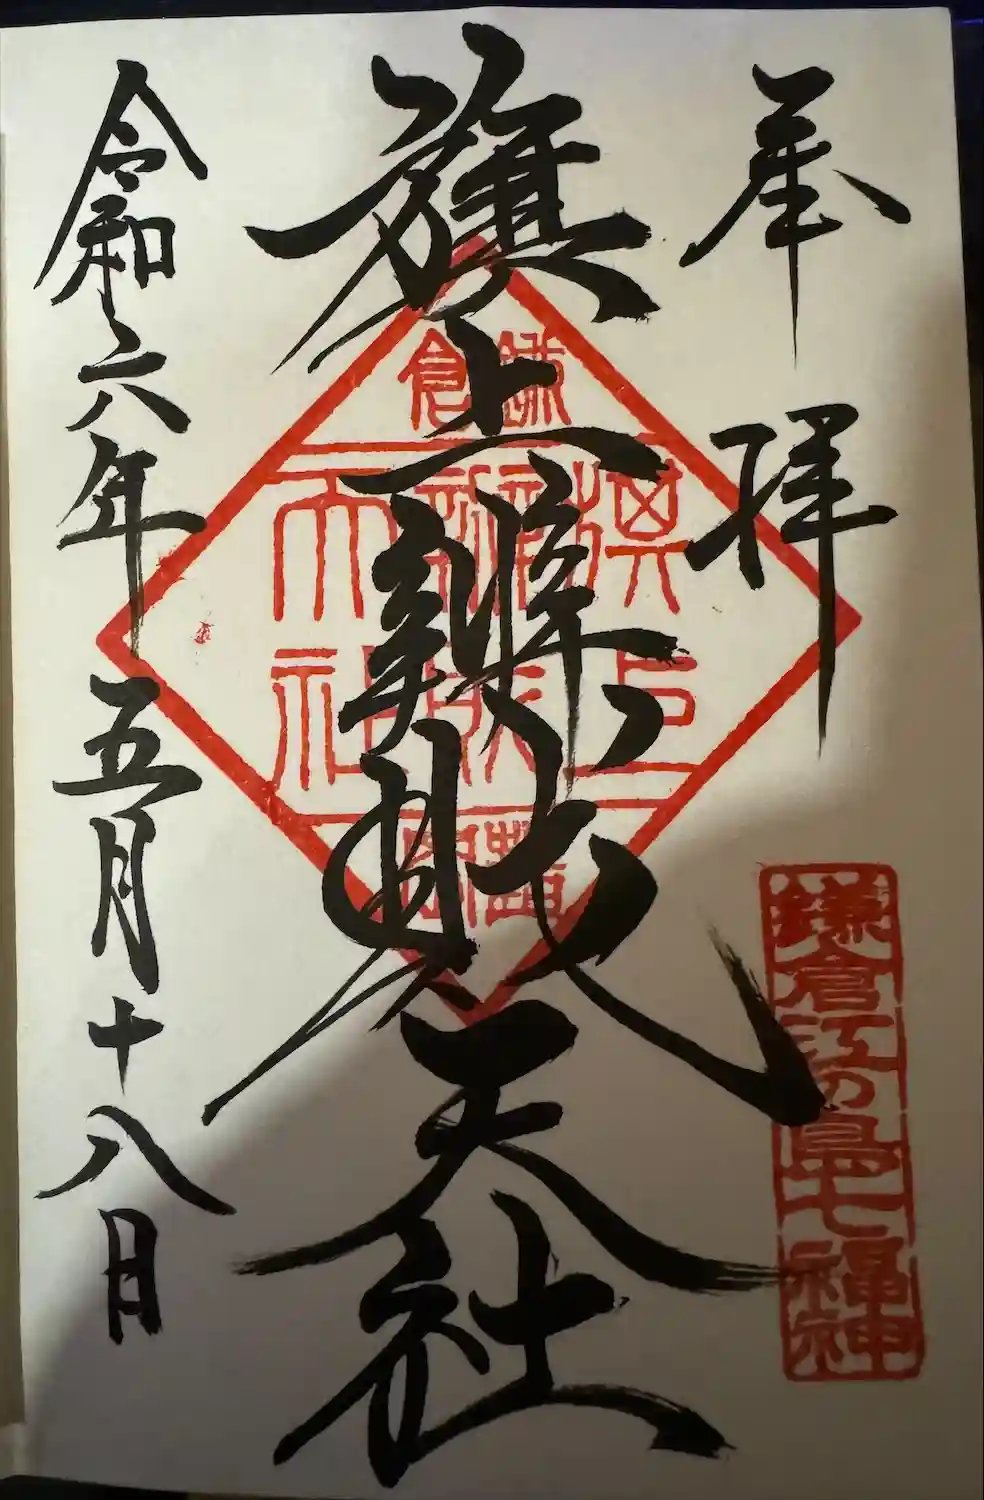 奉拝
鎌倉江の島七福神
旗上辨財天社
鎌倉
旗上
辨財
天社
令和六年五月十八日